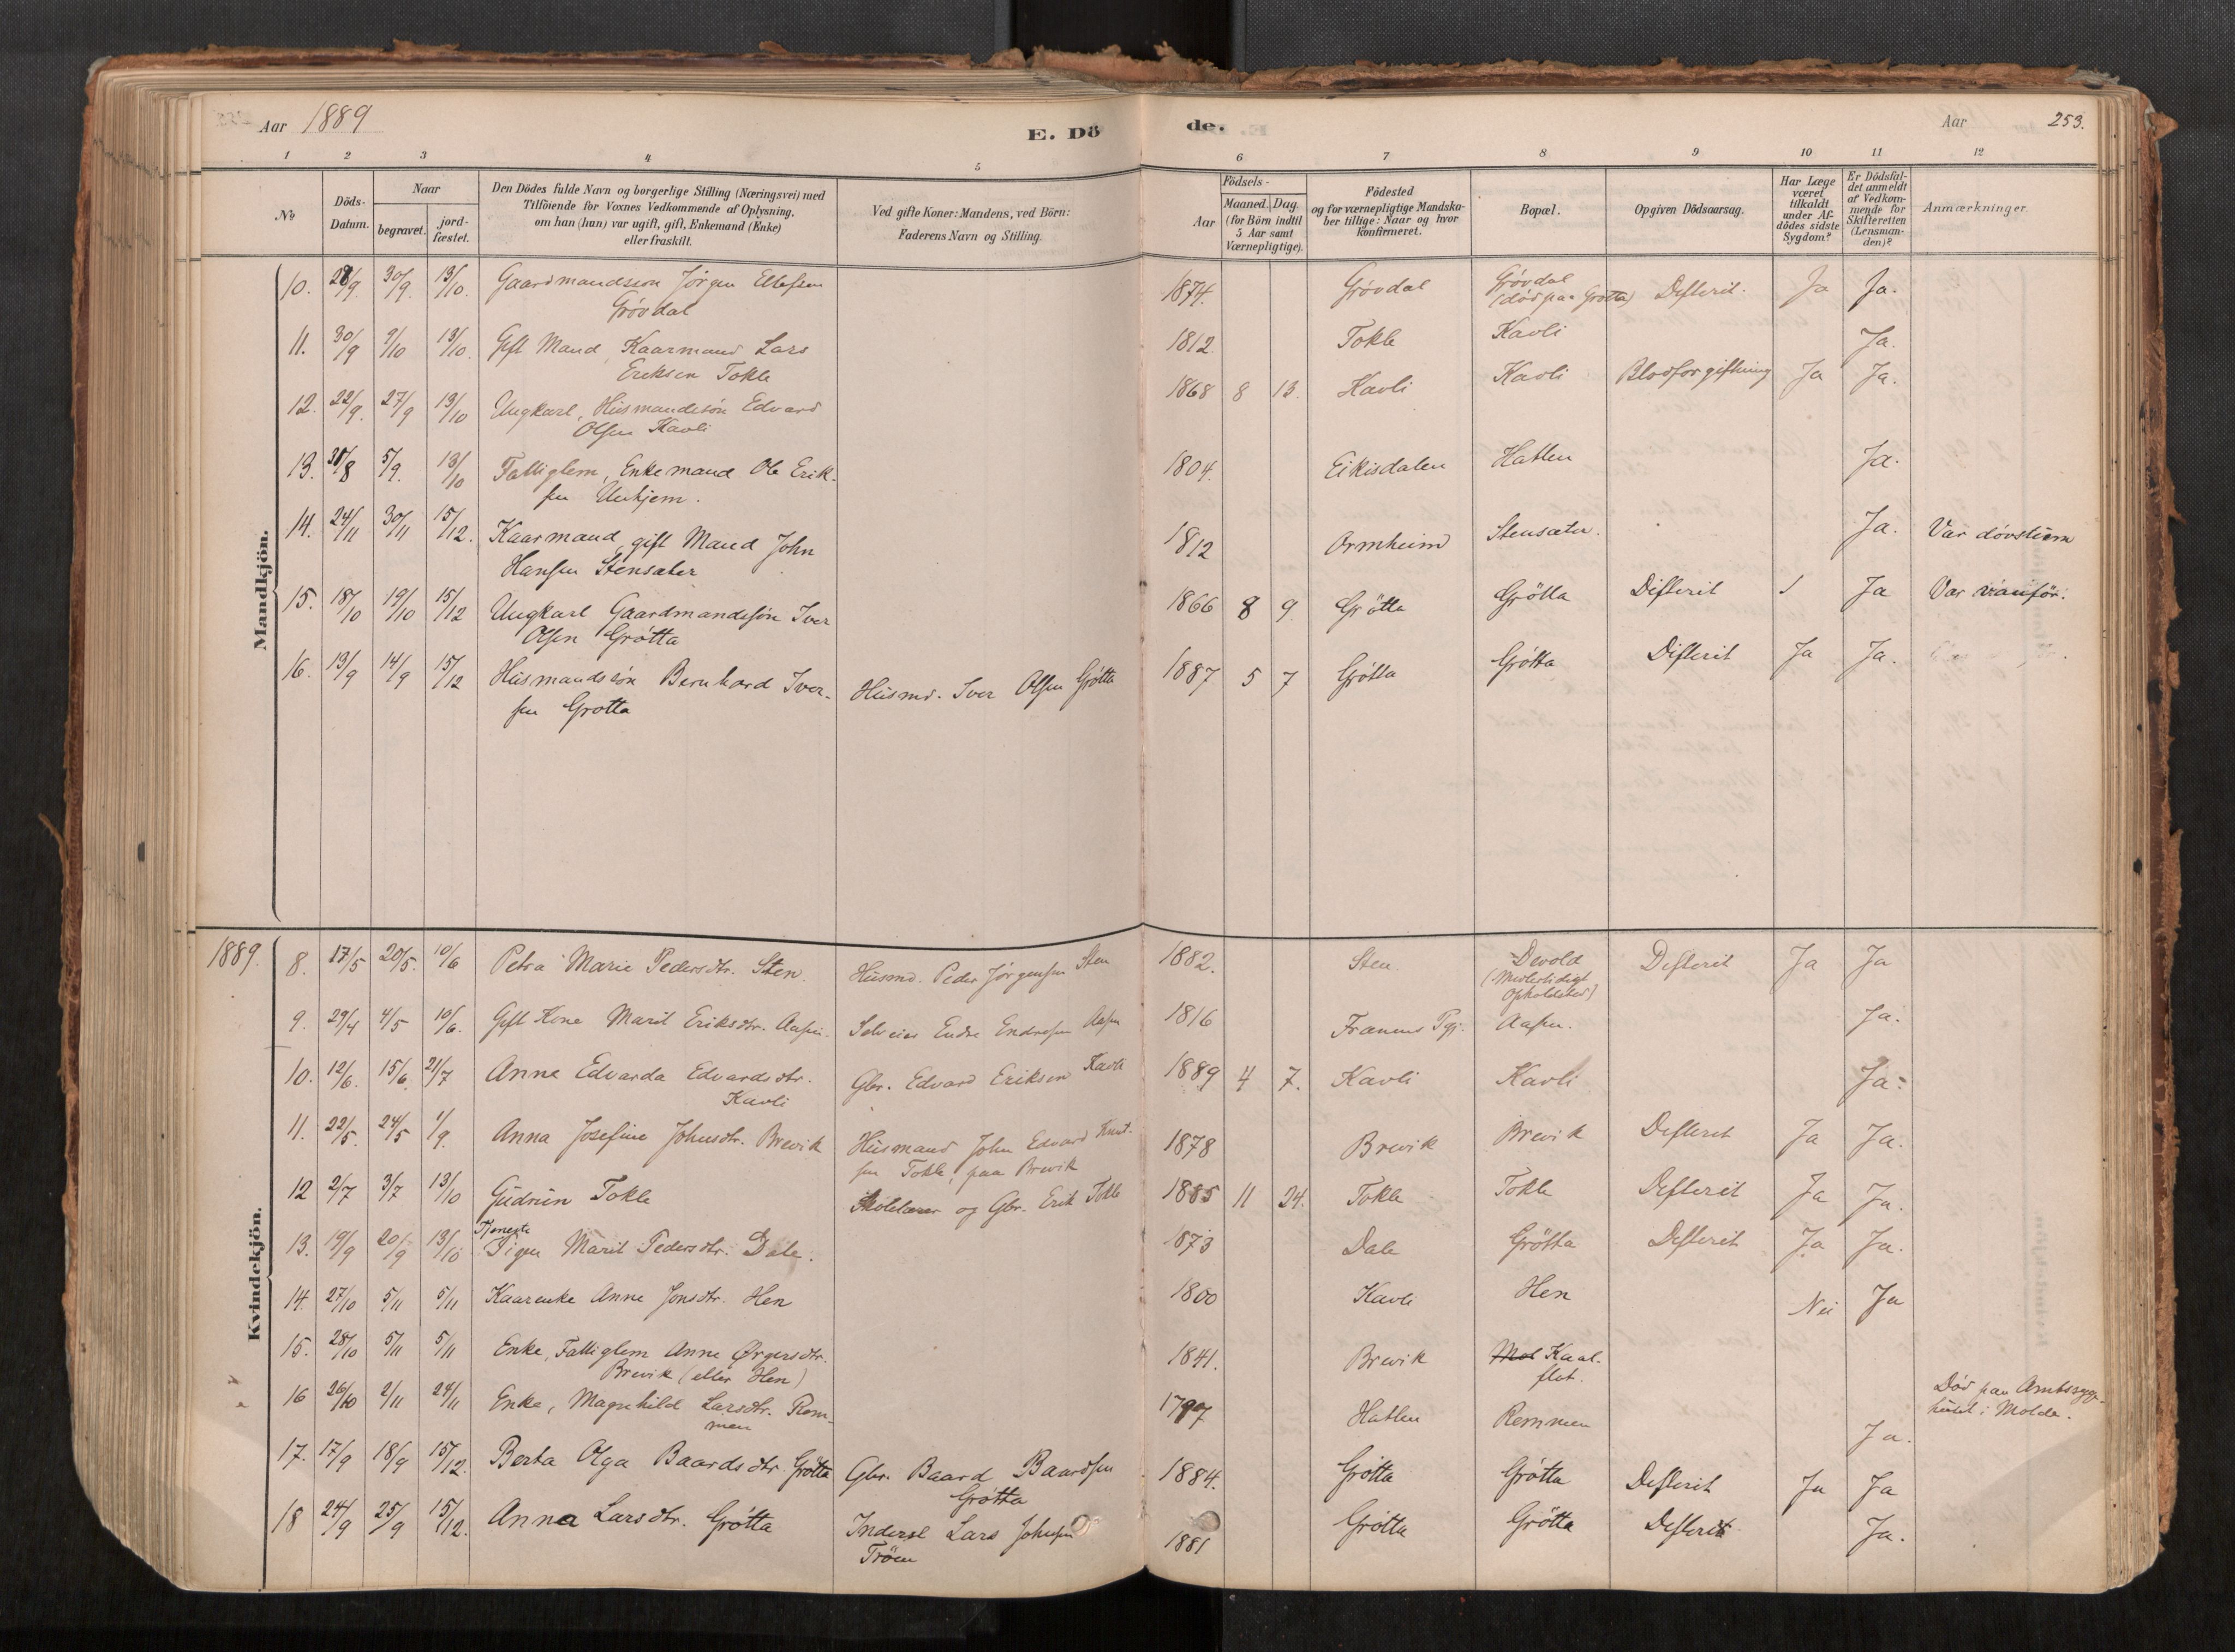 Aar 1889 E. Dö de. Aar 253.
1 2 3 4 5 6 7 8 9 10 11 12
No
Döds-Datum.
Naar
begravet.
jord-fæstet.
Den Dödes fulde Navn og borgerlige Stilling (Næringsvei) med
Tilföiende for Voxnes Vedkommende af Oplysning,
om han (hun) var ugift, gift, Enkemand (Enke)
eller fraskilt.
Ved gifte Koner: Mandens, ved Börn:
Faderens Navn og Stilling.
Födsels-
Aar
Maaned. Dag.
(for Börn indtil
5 Aar samt
Værnepligtige).
Födested
og for værnepligtige Mandska-
ber tillige: Naar og hvor
konfirmeret.
Bopæl.
Opgiven Dödsaarsag.
Har Læge
været
tilkaldt
under Af-
dödes sidste
Sygdom?
Er Dödsfal-
det anmeldt
af Vedkom-
mende for
Skifteretten
(Lensman-
den)?
Anmærkninger
Mandkjön.
10. 28/9 30/9. 13/10. Gaardmandssøn Jørgen Ellefsen 1874. Grøvdal Grøvdal Defterit. Ja Ja.
Grøvdal (død paa Grøtta)
11. 30/9 9/10 13/10. Gift Mand, Kaarmand Lars 1812. Tokle Kavli Ja.
Eriksen Tokle
12. 22/9. 27/9 13/10 Ungkarl, Husmandssøn Edvard 1868 8 13. Kavli Kavli Blodforgiftning Ja Ja.
Olsen Kavli
13. 30/8 5/9. 13/10 Fattiglem, Enkemand Ole Erik- 1804. Eikisdalen Hatlen Ja.
sen Unhjem.
14. 24/11 30/11 15/12. Kaarmand, gift Mand John 1812 Ormheim Stensæter. Ja. Var døvstum
Hansen Stensæter
15. 18/10 19/10 15/12 Ungkarl Gaardmandssøn Iver 1866 8 9. Grøtta Grøtta Difterit Ja Var vanför.
Olsen Grøtta
16. 13/9 14/9 15/12 Husmandssøn Bernhard Iver- Husmd. Iver Olsen Grøtta 1887 5 7 Grøtta Grøtta Difterit Ja Ja.
sen Grøtta
1889.
Kvindekjön.
8. 17/5 20/5. 10/6 Petra Marie Pedersdtr. Sten. Husmd. Peder Jørgensen Sten 1882. Sten. Devold Defterit Ja Ja
(Midlertidigt
Opholdsted)
9. 29/4 4/5 10/6. Gift Kone Marit Eriksdtr. Aasen. Selveier Endre Endresen Aasen 1816 Frænens Pgj. Aasen. Ja.
10. 12/6. 15/6. 21/7 Anne Edvarda Edvardsdtr. Gbr. Edvard Eriksen Kavli 1889 4 7. Kavli Kavli Ja.
Kavli
11. 22/5. 24/5 1/9. Anna Josefine Johnsdtr. Brevik Husmand John Edvard Knut- 1878 Brevik Brevik Defterit Ja Ja.
sen Tokle, paa Brevik
12 2/7 3/7 13/10 Gudrun Tokle Skolelærer og Gbr. Erik Tokle 1885 11 24. Tokle Tokle Defterit Ja Ja.
13. 19/9 20/9 13/10 Tjeneste Pigen Marit Pedersdtr. Dale. 1873 Dale Grøtta Defterit Ja Ja.
14. 27/10 5/11 5/11 Kaarenke Anne Jonsdtr. Hen 1800 Kavli Hen Nei Ja
15. 28/10 5/11 5/11 Enke, Fattiglem Anne Ørgersdtr. 1841. Brevik Mol Kaal-
Brevik (eller Hen) flot.
16 26/10 2/11 24/11 Enke, Magnhild Larsdtr. Rem- 1797 Hatlen Remmen Ja. Død paa Amtssyge-
men huset i Molde.
17. 17/9 18/9 15/12. Berta Olga Baardsdtr. Grøtta Gbr. Baard Baardsen 1884. Grøtta Grøtta Defterit Ja Ja
Grøtta
18 24/9 25/9 15/12. Anna Larsdtr. Grøtta Inderst Lars Johnsen 1881 Grøtta Grøtta Defterit Ja.
Trøen